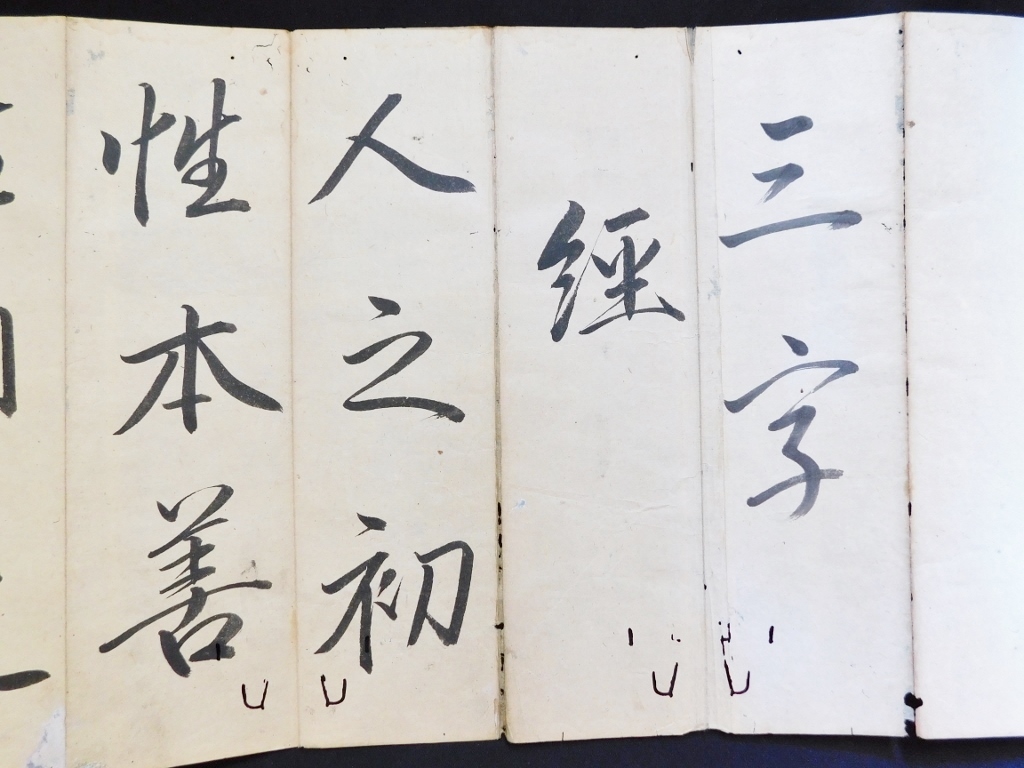 三字
經
人之初
性本善